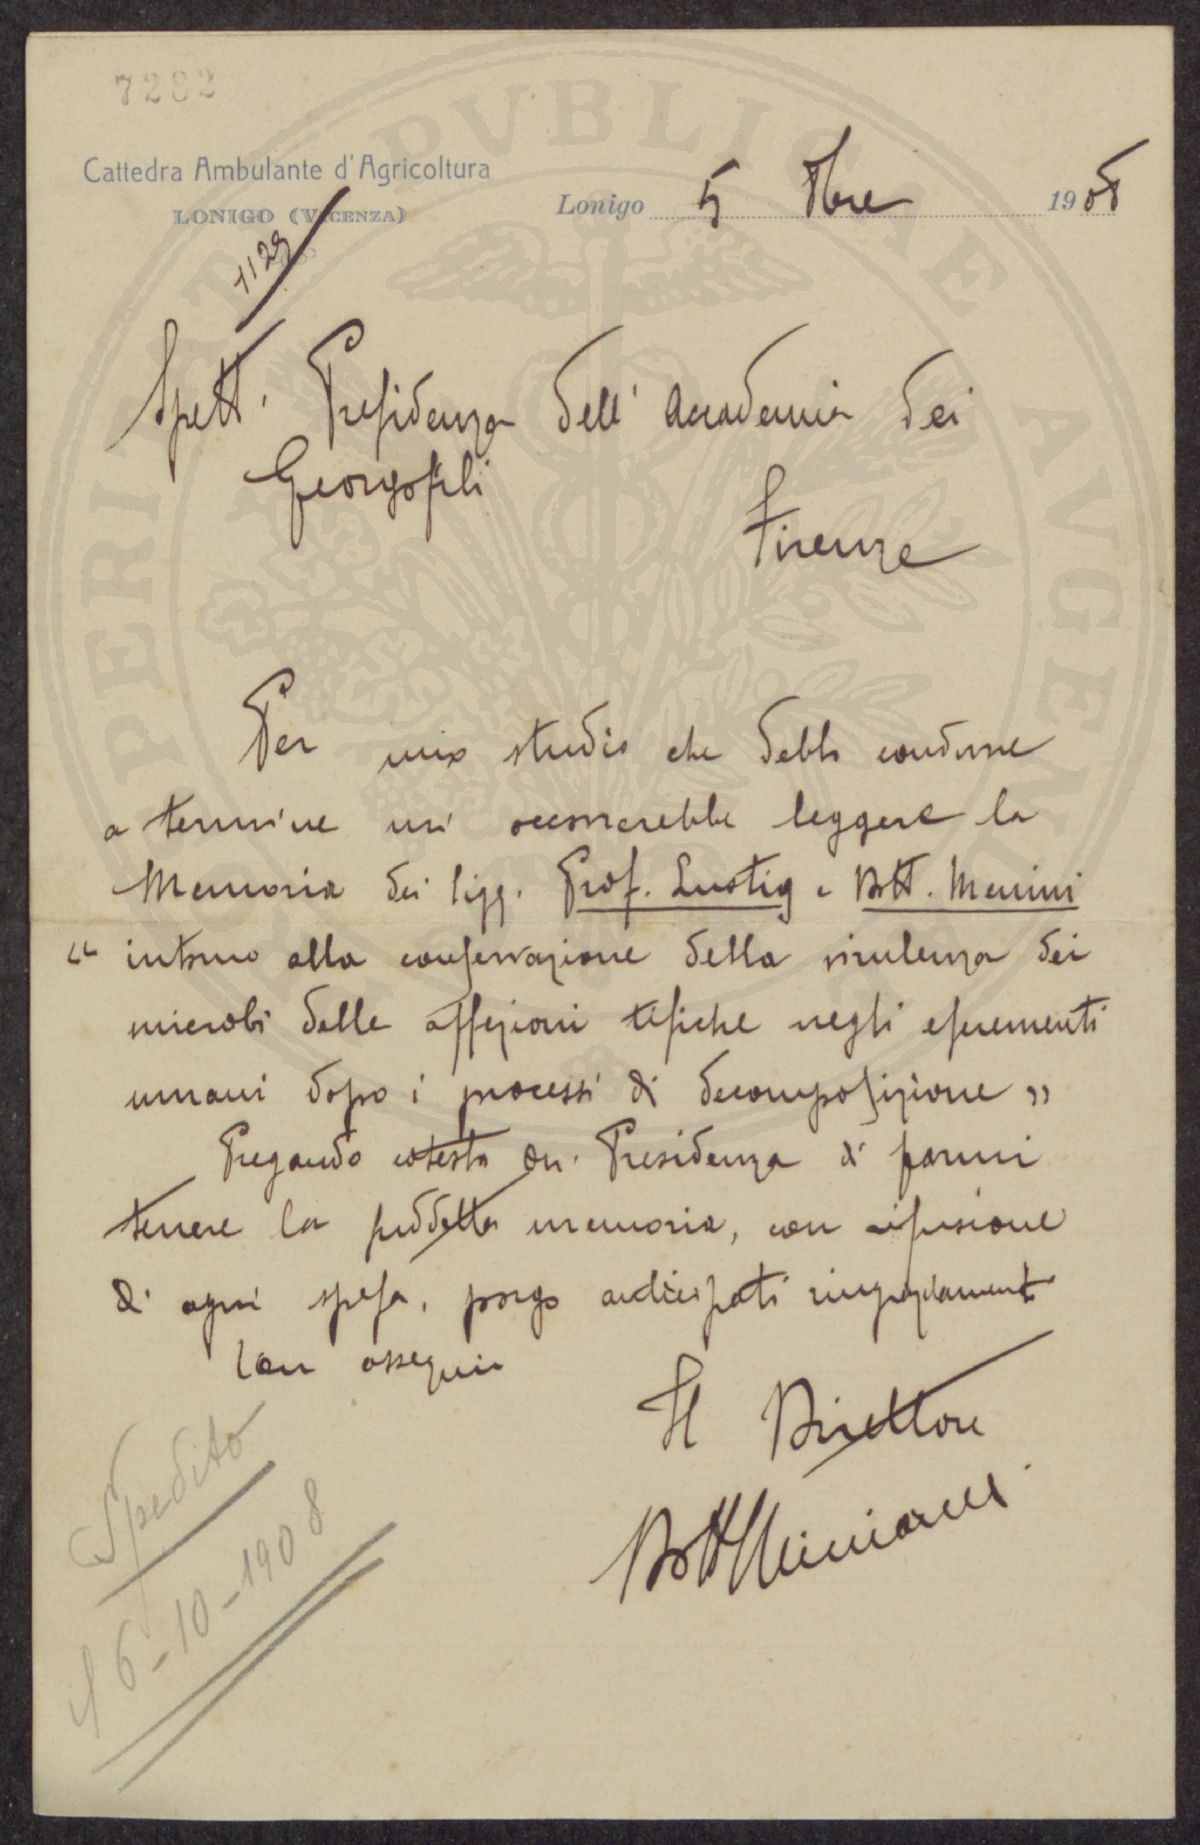 7282
Cattedra Ambulante d'Agricoltura
LONIGO (VICENZA)
Lonigo 5 8bre 1908
1129
Spett. Presidenza dell' Accademia dei
Georgofili
Firenze
Per uno studio che debbo condurre
a termine mi occorrerebbe leggere la
Memoria dei Sigg. Prof. Lustig e Dott. Mennini
“ intorno alla conservazione della virulenza dei
microbi delle affezioni tifiche negli escrementi
umani dopo i processi di decomposizione ”
Pregando cotesta On. Presidenza di farmi
tenere la suddetta memoria, con rifusione
di ogni spesa, porgo anticipati ringraziamenti
Con ossequio
Il Direttore
Dott
Spedito
il 6-10-1908
PERITAT PVBLICAE AVGEN